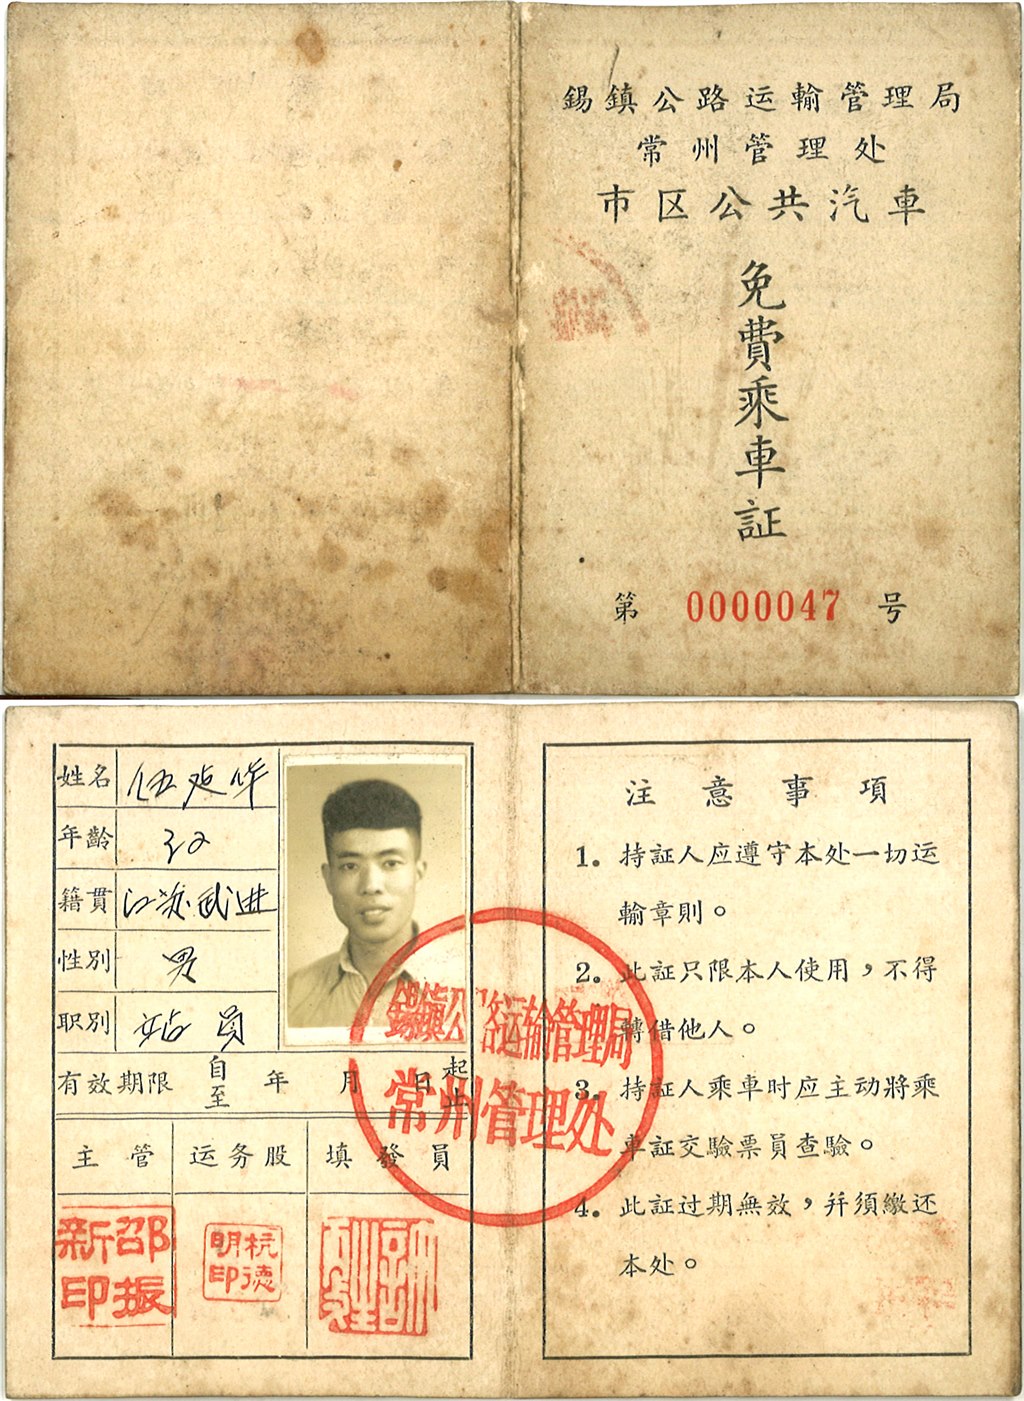 錫鎮公路运輸管理局
常州管理处
市区公共汽車
免費乘車証
第 0000047 号
姓名 伍
年齡
籍貫 江苏武进
性別 男
职別 站员
有效期限 自至 年 月 日 起止
主管 运务股 填發員
邵振新印
杭德明印
錫鎮公路运输管理局
常州管理处
注意事項
1. 持証人应遵守本处一切运
輸章則。
2. 此証只限本人使用，不得
轉借他人。
3. 持証人乘車时应主动將乘
車証交驗票員查驗。
4. 此証过期無效，幷須繳还
本处。